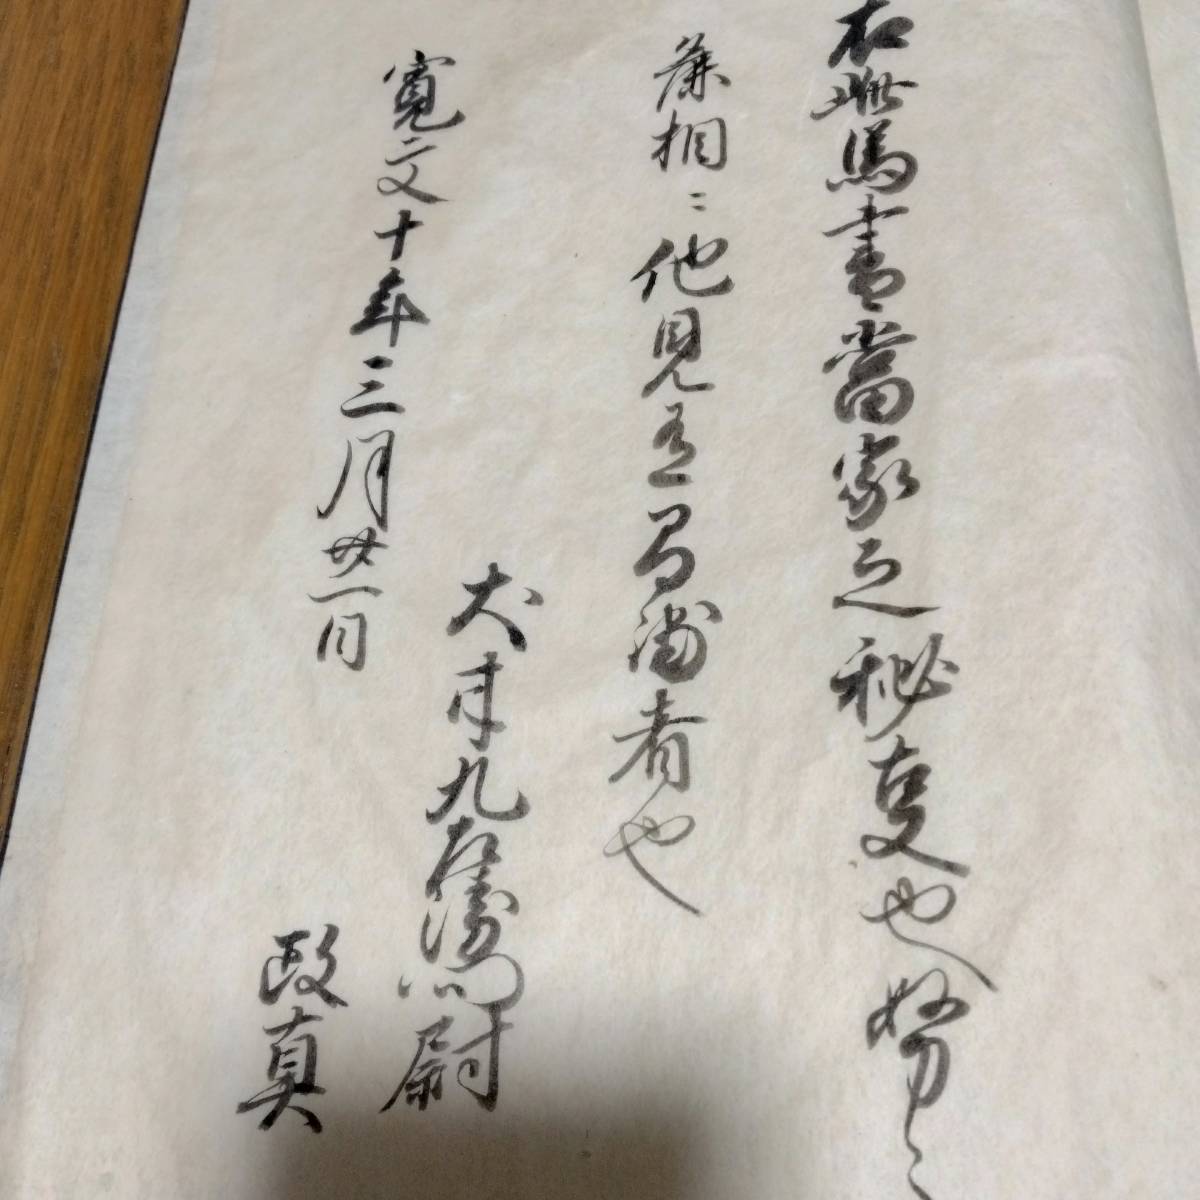 右此馬書當家之秘事也努々
廉相ニ他見有間鋪者也
寛文十年三月廿一日
大月九左衛門尉
政真